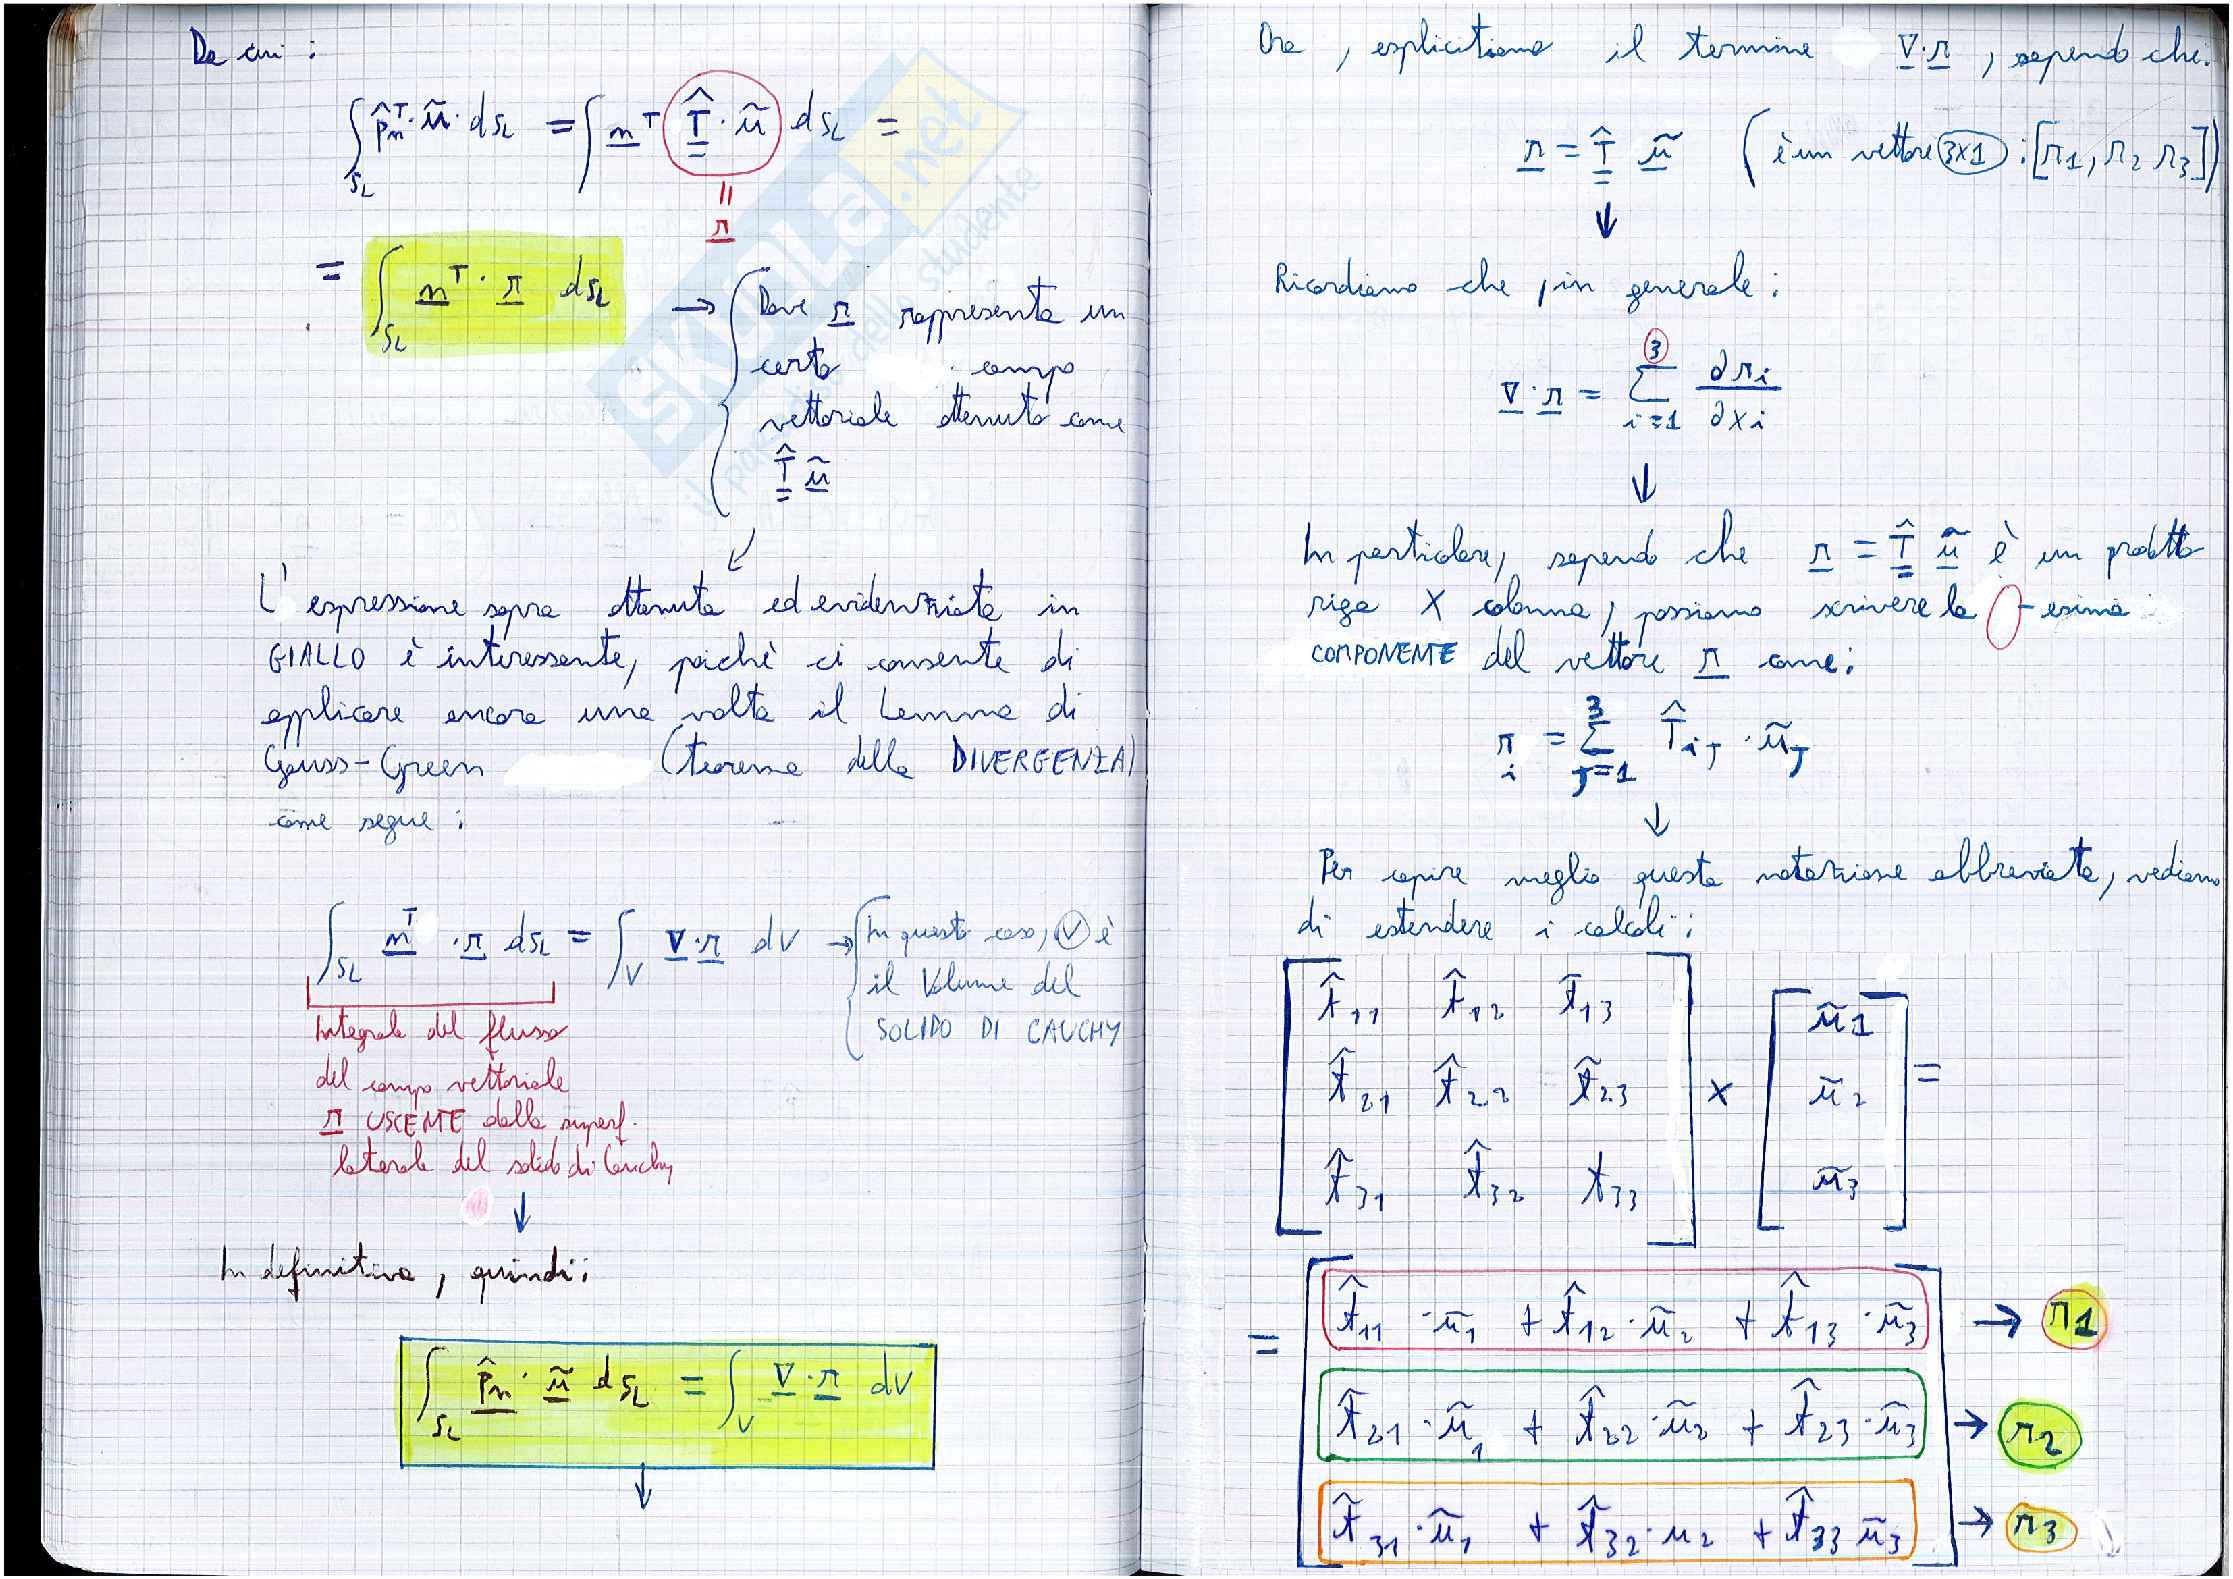 Da cui :
∫_{S_L} p̂_n^T · ũ · dS_L = ∫ n^T T̂ · ũ dS_L =
= r
= ∫_{S_L} n^T · r dS_L → Dove r rappresenta un
certo campo
vettoriale ottenuto come
T̂ ũ
L'espressione sopra ottenuta ed evidenziata in
GIALLO è interessante, poichè ci consente di
applicare ancora una volta il Lemma di
Gauss-Green (teorema della DIVERGENZA)
come segue :
∫_{S_L} n^T · r dS_L = ∫_V ∇·r dV → In questo caso, V è
il Volume del
SOLIDO DI CAUCHY
Integrale del flusso
del campo vettoriale
r USCENTE dalla superf.
laterale del solido di Cauchy
↓
In definitiva, quindi:
∫_{S_L} p̂_n · ũ dS_L = ∫_V ∇·r dV
↓
Ora, esplicitiamo il termine ∇·r, sapendo che:
r = T̂ ũ (è un vettore 3x1 : [r1, r2 r3])
↓
Ricordiamo che, in generale:
∇·r = Σ_{i=1}^{3} ∂r_i / ∂x_i
↓
In particolare, sapendo che r = T̂ ũ è un prodotto
riga X colonna, possiamo scrivere la -esima
COMPONENTE del vettore r come:
r_i = Σ_{J=1}^{3} T̂_{iJ} · ũ_J
↓
Per capire meglio questa notazione abbreviata, vediamo
di estendere i calcoli:
t̂11 t̂12 t̂13 ũ1
t̂21 t̂22 t̂23 x ũ2 =
t̂31 t̂32 t33 ũ3
= t̂11 · ũ1 + t̂12 · ũ2 + t̂13 · ũ3 → r1
t̂21 · ũ1 + t̂22 · ũ2 + t̂23 · ũ3 → r2
t̂31 · ũ1 + t̂32 · u2 + t̂33 ũ3 → r3
SKUOLA.net
il paradiso dello studente